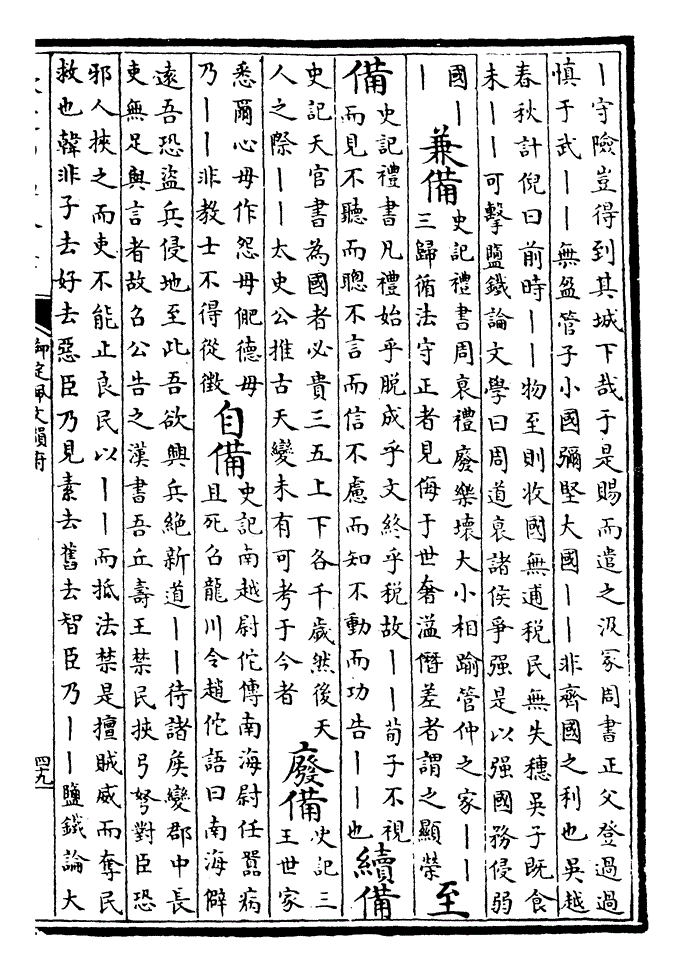 丨守險豈得到其城下哉于是賜而遣之汲冢周書正父登過過
慎于武丨丨無盈管子小國彌堅大國丨丨非齊國之利也吳越
春秋計倪曰前時丨丨物至則收國無逋税民無失穗吳子既食
未丨丨可擊鹽鐵論文學曰周道衰諸侯爭强是以强國務侵弱
國丨丨
兼備
史記禮書周衰禮廢樂壞大小相踰管仲之家丨丨
三歸循法守正者見侮于世奢溢僭差者謂之顯榮
至
備
史記禮書凡禮始乎脱成乎文終乎税故丨丨荀子不視
而見不聽而聰不言而信不慮而知不動而功告丨丨也
續備
史記天官書為國者必貴三五上下各千歲然後天
人之際丨丨太史公推古天變未有可考于今者
廢備
史記三
王世家
悉爾心毋作怨毋俷德毋
乃丨丨非教士不得從徵
自備
史記南越尉佗傳南海尉任囂病
且死召龍川令趙佗語曰南海僻
遠吾恐盜兵侵地至此吾欲興兵絶新道丨丨待諸矦變郡中長
吏無足與言者故召公告之漢書吾丘壽王禁民挾弓弩對臣恐
邪人挾之而吏不能止良民以丨丨而抵法禁是擅賊威而奪民
救也韓非子去好去惡臣乃見素去舊去智臣乃丨丨鹽鐵論大
御定佩文韻府
四九